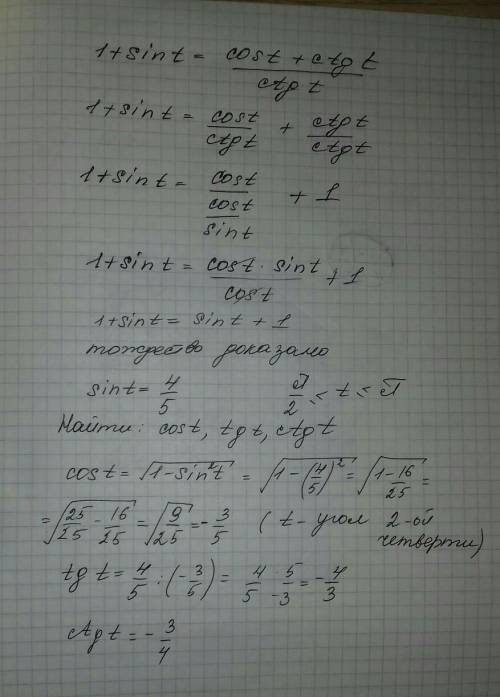 1+sin t = (cos t + ctg t)/(ctg t)
1+sin t = cos t/ctg t + ctg t/ctg t
1+sin t = cos t/(cos t/sin t) + 1
1+sin t = (cos t · sin t)/cos t + 1
1+sin t = sin t + 1
тождество доказано
sin t = 4/5   π/2 ≤ t ≤ π
Найти: cos t, tg t, ctg t
cos t = √(1-sin²t) = √(1-(4/5)²) = √(1-16/25) =
= √(25/25 - 16/25) = √(9/25) = -3/5 (t - угол 2-ой четверти)
tg t = 4/5 : (-3/5) = 4/5 · 5/-3 = -4/3
ctg t = -3/4